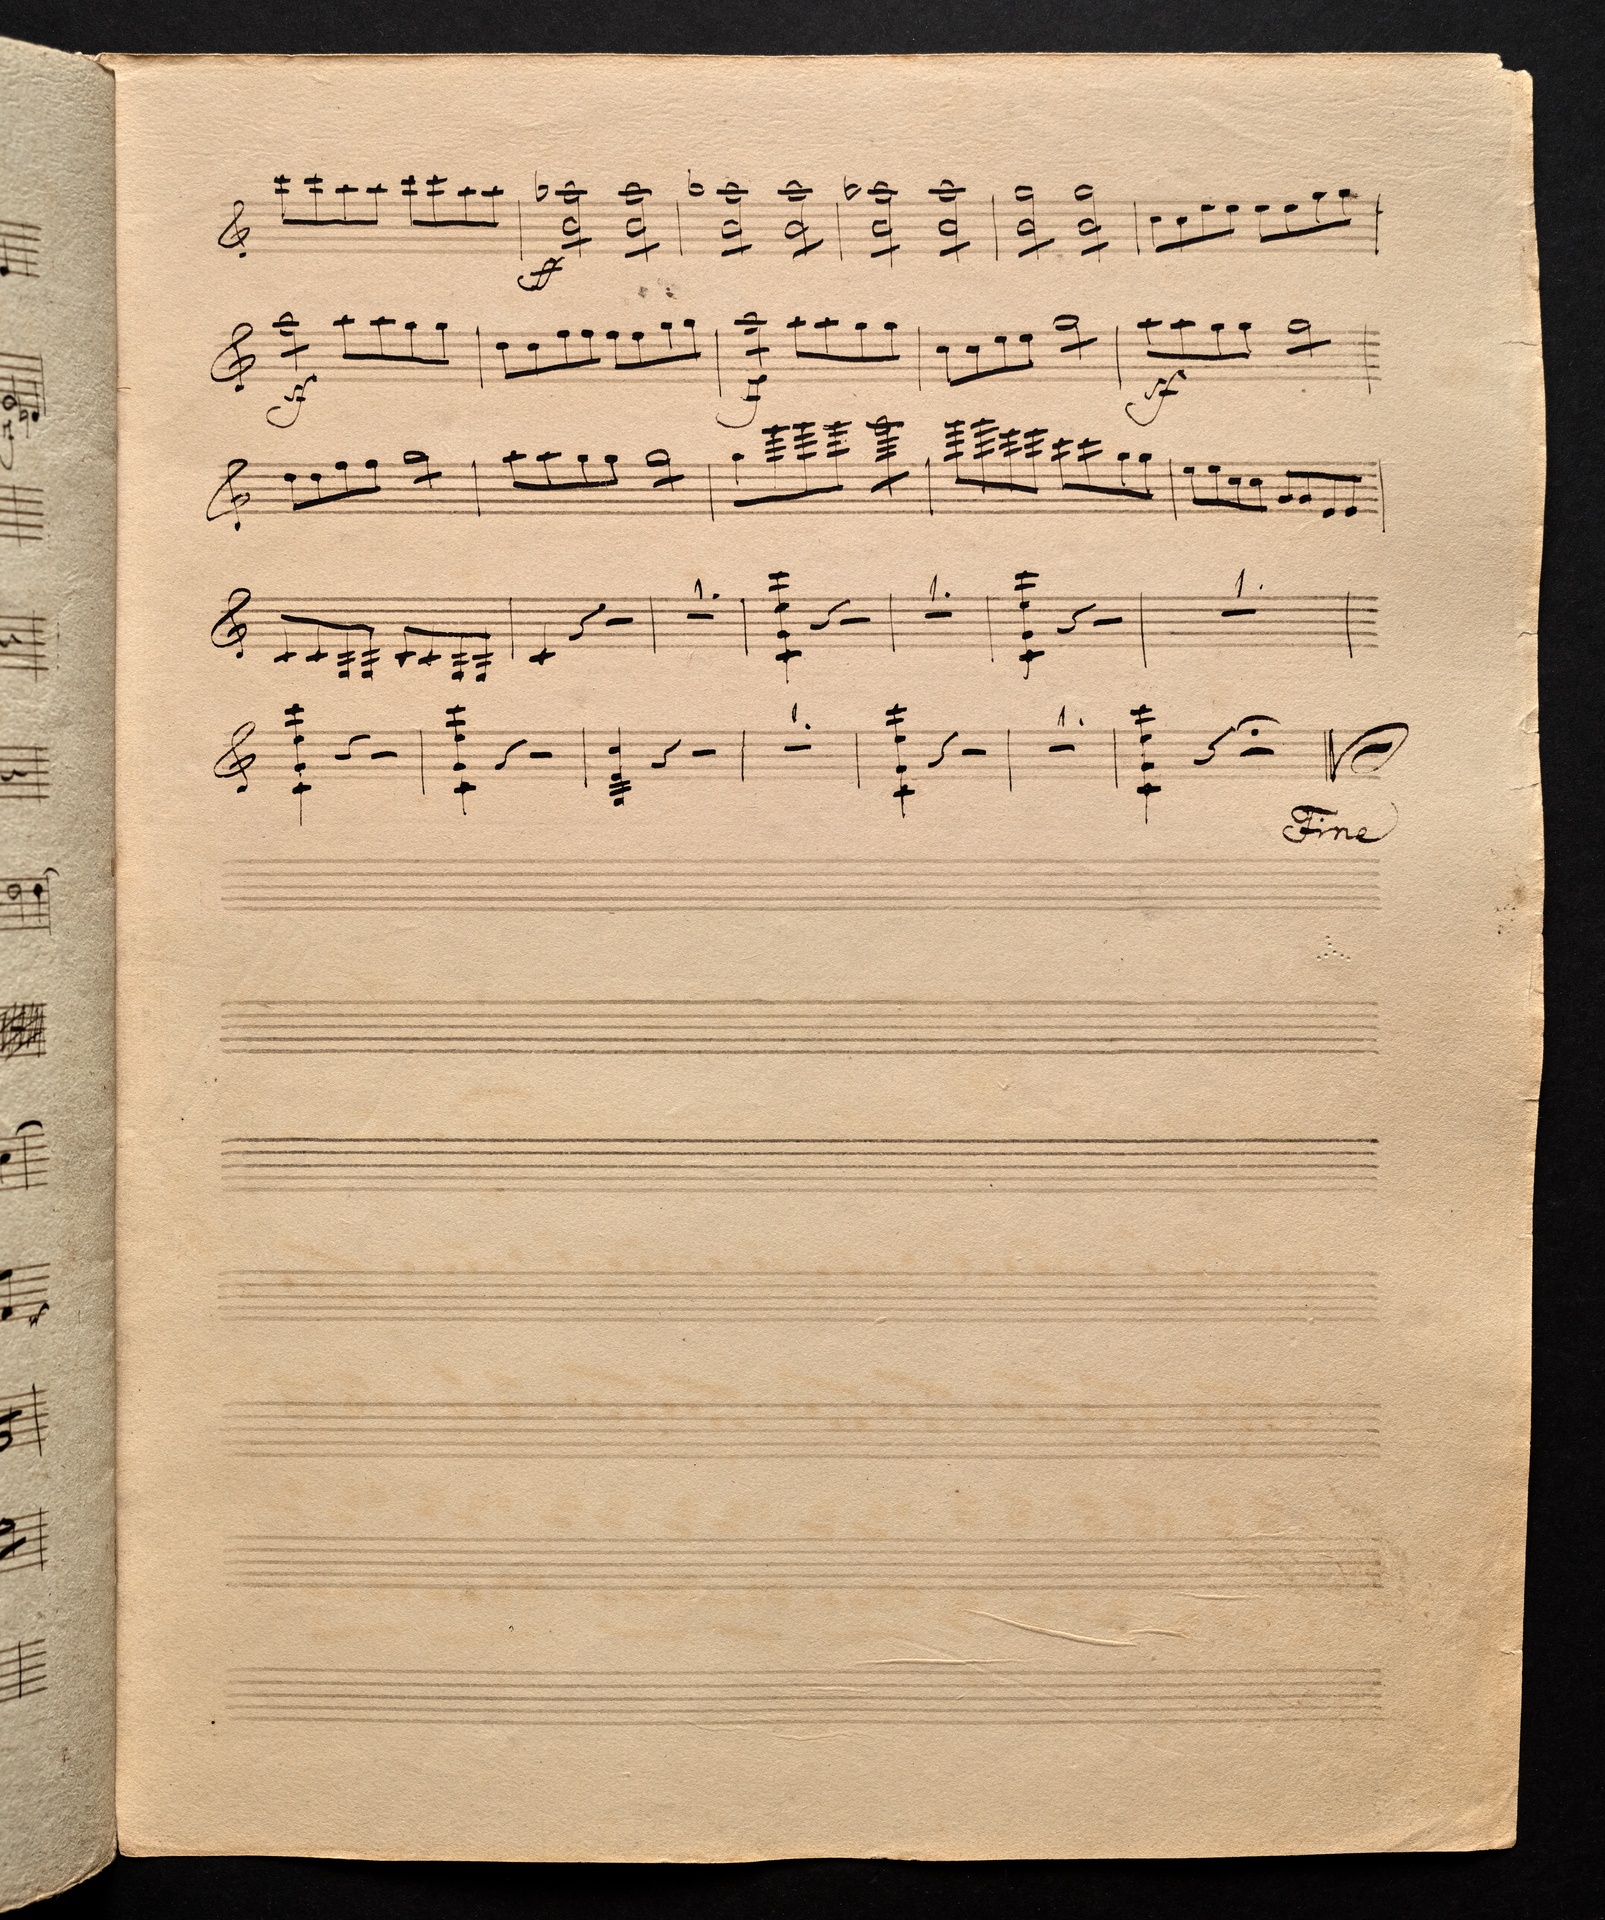 ff
sf f sf
1. 1. 1.
1. 1.
Fine